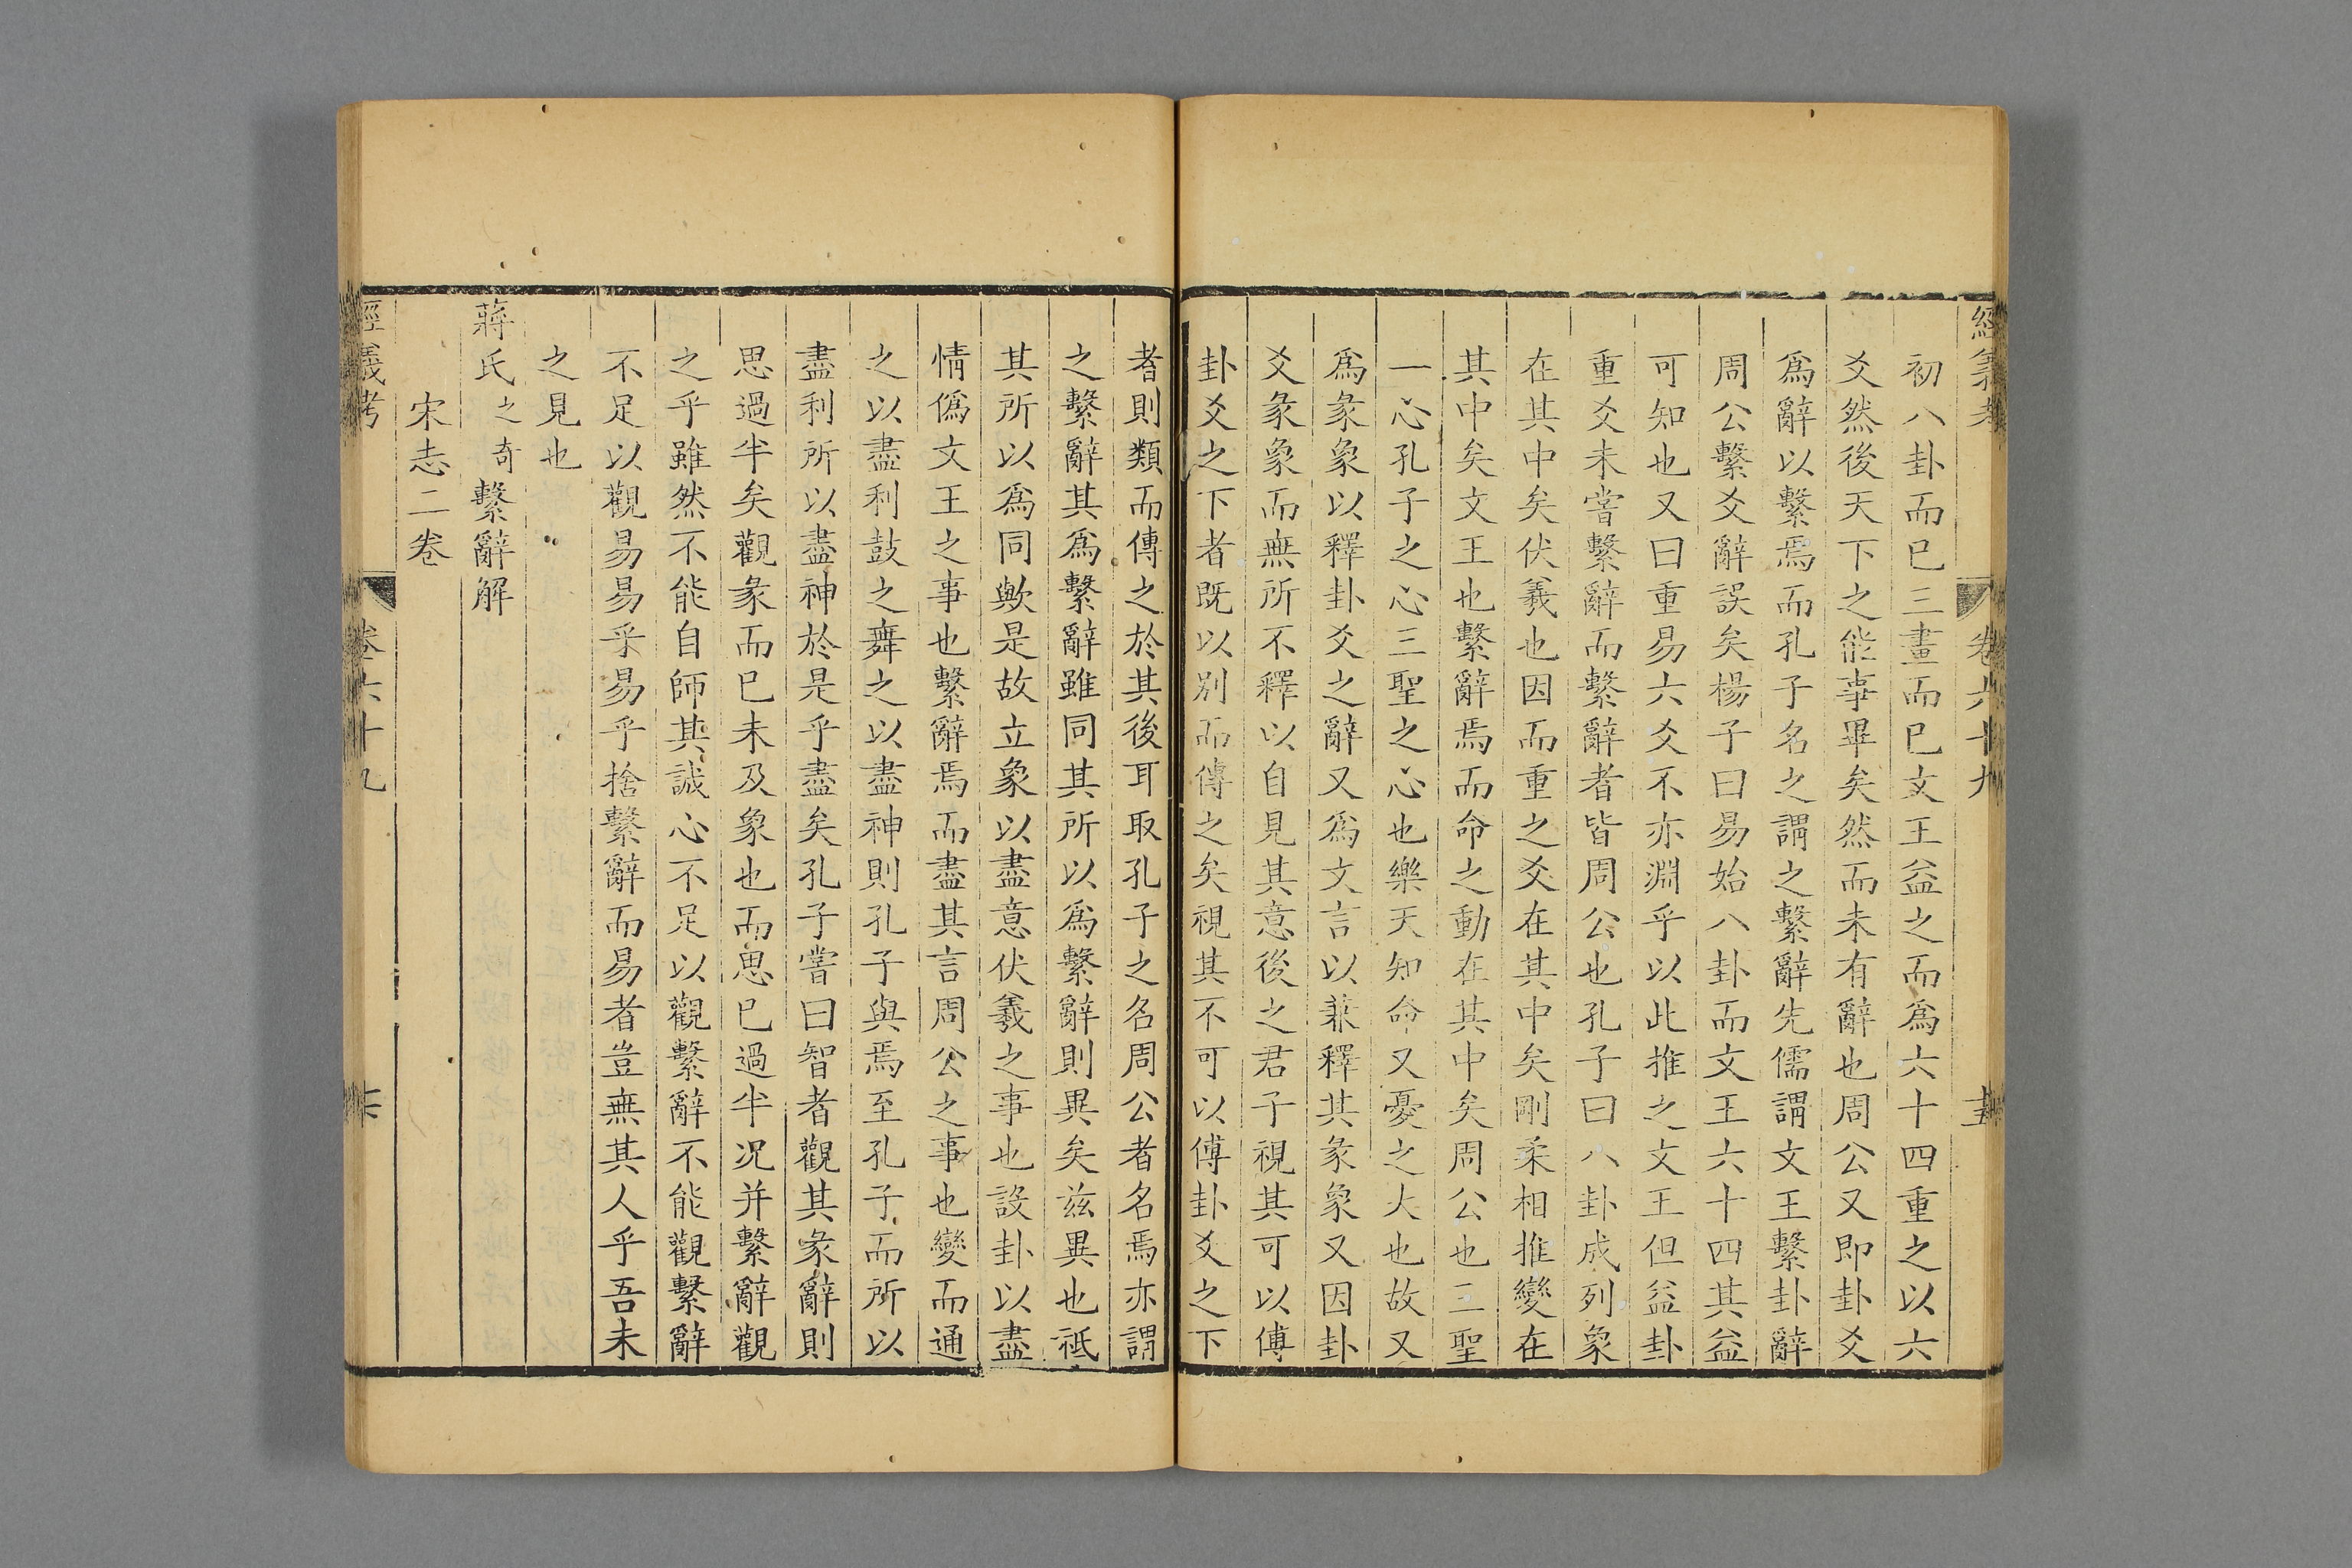 經義考　卷六十九
初八卦而已三畫而已文王益之而爲六十四重之以六
爻然後天下之能事畢矣然而未有辭也周公又即卦爻
爲辭以繫焉而孔子名之謂之繫辭先儒謂文王繫卦辭
周公繫爻辭誤矣楊子曰易始八卦而文王六十四其益
可知也又曰重易六爻不亦淵乎以此推之文王但益卦
重爻未嘗繫辭而繫辭者皆周公也孔子曰八卦成列象
在其中矣伏羲也因而重之爻在其中矣剛柔相推變在
其中矣文王也繫辭焉而命之動在其中矣周公也三聖
一心孔子之心三聖之心也樂天知命又憂之大也故又
爲彖象以釋卦爻之辭又爲文言以兼釋其彖象又因卦
爻彖象而無所不釋以自見其意後之君子視其可以傳
卦爻之下者既以別而傳之矣視其不可以傳卦爻之下
者則類而傳之於其後耳取孔子之名周公者名焉亦謂
之繫辭其爲繫辭雖同其所以爲繫辭則異矣茲異也祗
其所以爲同歟是故立象以盡意伏羲之事也設卦以盡
情僞文王之事也繫辭焉而盡其言周公之事也變而通
之以盡利鼓之舞之以盡神則孔子與焉至孔子而所以
盡利所以盡神於是乎盡矣孔子嘗曰智者觀其彖辭則
思過半矣觀彖而已未及象也而思已過半况并繫辭觀
之乎雖然不能自師其誠心不足以觀繫辭不能觀繫辭
不足以觀易易乎易乎捨繫辭而易者豈無其人乎吾未
之見也
蔣氏之奇繫辭解
宋志二卷
經義考　卷六十九